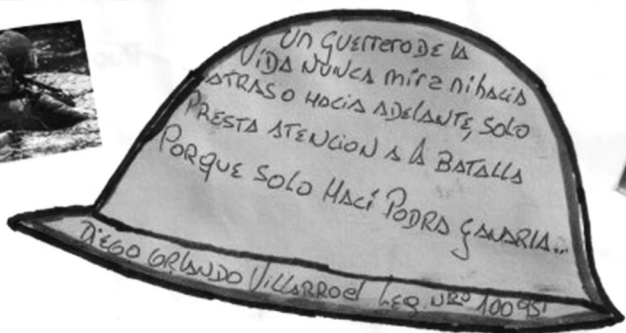 Un guerrero de la
vida nunca mira ni hacia
atras o hacia adelante, solo
presta atencion a la batalla
porque solo hací podra ganarla...
Diego Orlando Villarroel Leg. Nro 10095